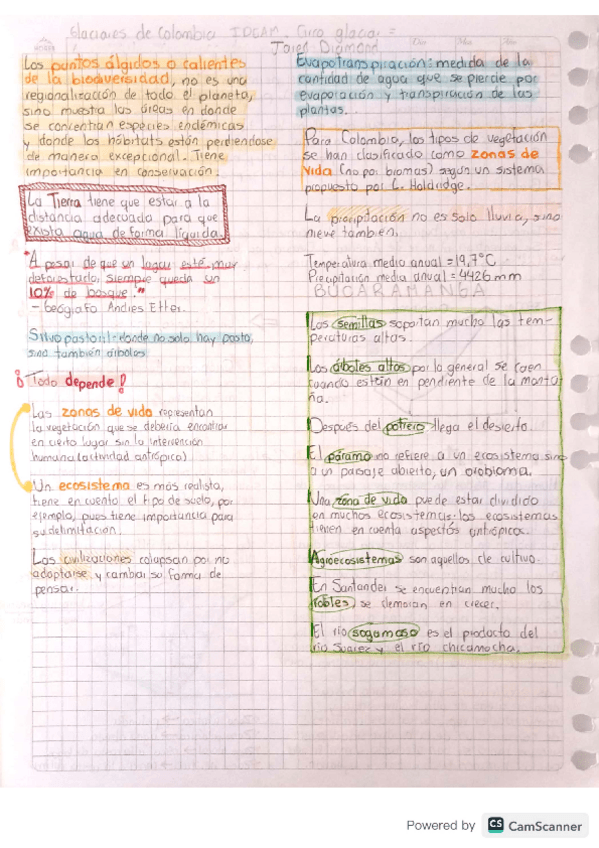 Glaciares de Colombia IDEAM.
Jared Diamond
Los puntos álgidos o calientes
de la biodiversidad, no es una
regionalización de todo el planeta,
sino muestra las áreas en donde
se concentran especies endémicas
y donde los hábitats están perdiendose
de manera excepcional. Tiene
importancia en conservación.
La Tierra tiene que estar a la
distancia adecuada para que
exista agua de forma líquida.
"A pesar de que un lugar esté muy
deforestado, siempre queda un
10% de bosque."
- Geógrafo Andrés Etter.
Silvopastoril: donde no solo hay pasto,
sino también árboles
¡Todo depende!
Las zonas de vida representan
la vegetación que se debería encontrar
en cierto lugar sin la intervención
humana (actividad antrópica)
Un ecosistema es más realista,
tiene en cuenta el tipo de suelo, por
ejemplo, pues tiene importancia para
su delimitación.
Las civilizaciones colapsan por no
adaptarse y cambiar su forma de
pensar.
Evapotranspiración: medida de la
cantidad de agua que se pierde por
evaporación y transpiración de las
plantas.
Para Colombia, los tipos de vegetación
se han clasificado como zonas de
vida (no por biomas) según un sistema
propuesto por L. Holdridge.
La precipitación no es solo lluvia, sino
nieve también.
Temperatura media anual = 19,7°C
Precipitación media anual = 4426 mm
BUCARAMANGA
Las semillas soportan mucho las tem-
peraturas altas.
Los árboles altos por lo general se caen
cuando están en pendiente de la monta
ña.
Después del potrero llega el desierto.
El páramo no refiere a un ecosistema sino
a un paisaje abierto, un orobioma.
Una zona de vida puede estar dividido
en muchos ecosistemas: los ecosistemas
tienen en cuenta aspectos antrópicos.
Agroecosistemas son aquellos de cultivo.
En Santander se encuentran mucho los
robles, se demoran en crecer.
El río sogamoso es el producto del
río Suarez y el río chicamocha.
Powered by CS CamScanner